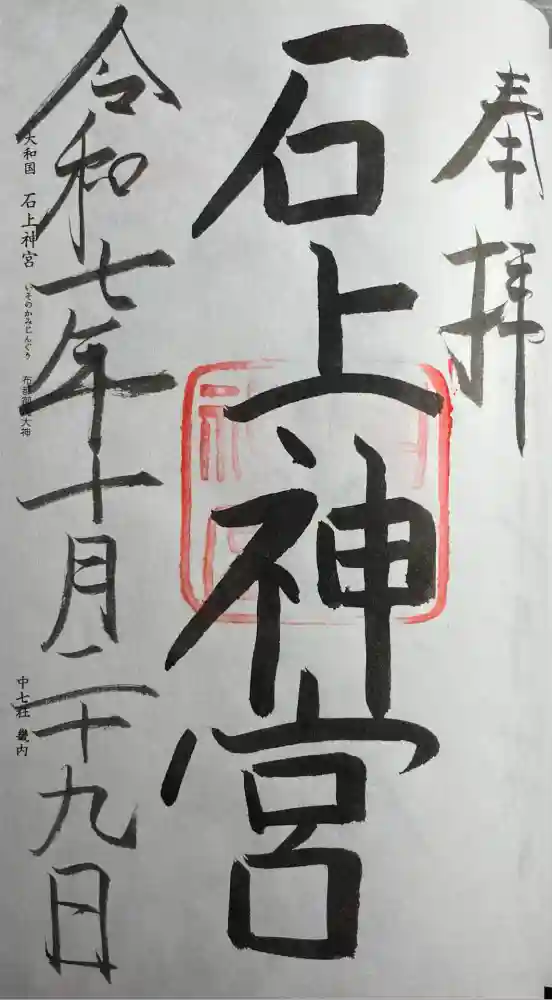 奉拝
石上神宮
令和七年十月二十九日
大和国 石上神宮 いそのかみじんぐう 布都御魂大神
中七社 畿内